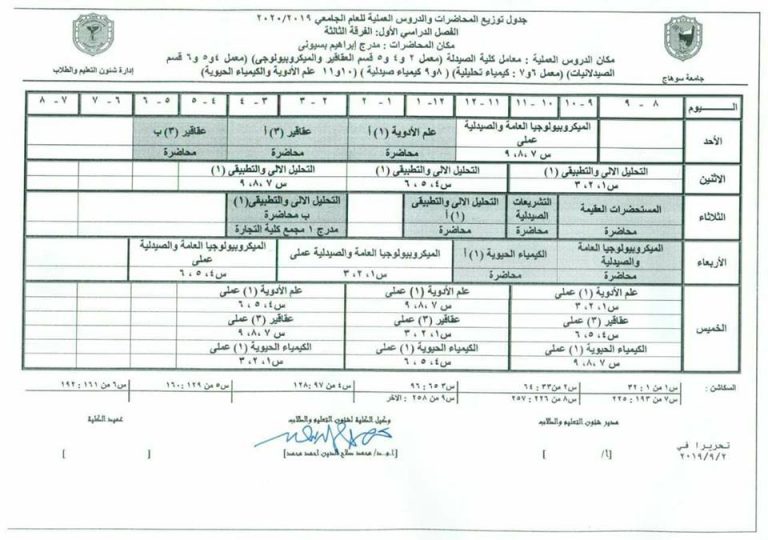 جدول توزيع المحاضرات والدروس العملية للعام الجامعي ٢٠٢٠/٢٠١٩
الفصل الدراسي الأول: الفرقة الثالثة
مكان المحاضرات : مدرج إبراهيم بسيونى
مكان الدروس العملية : معامل كلية الصيدلة (معمل ٢ و٤ و٥ قسم العقاقير والميكروبيولوجى) (معمل ٤و٥ و٦ قسم
الصيدلانيات) (معمل ٦و٧ : كيمياء تحليلية) ( ٨و٩ كيمياء صيدلية ) (١٠و١١ علم الأدوية والكيمياء الحيوية)
جامعة سوهاج
إدارة شئون التعليم والطلاب
اليـــوم ٨ - ٩ ٩-١٠ ١٠-١١ ١١-١٢ ١٢-١ ١ - ٢ ٢ - ٣ ٣ - ٤ ٤ - ٥ ٥ - ٦ ٦ - ٧ ٧ - ٨
الأحد
الميكروبيولوجيا العامة والصيدلية
عملى
س ٧، ٨، ٩
علم الأدوية (١) أ
محاضرة
عقاقير (٣) أ
محاضرة
عقاقير (٣) ب
محاضرة
الاثنين
التحليل الالى والتطبيقى (١)
س ١، ٢، ٣
التحليل الالى والتطبيقى (١)
س ٤، ٥، ٦
التحليل الالى والتطبيقى (١)
س ٧، ٨، ٩
الثلاثاء
المستحضرات العقيمة
محاضرة
التشريعات
الصيدلية
محاضرة
التحليل الالى والتطبيقى
(١) أ
محاضرة
التحليل الالى والتطبيقى(١)
ب محاضرة
مدرج ١ مجمع كلية التجارة
الأربعاء
الميكروبيولوجيا العامة
والصيدلية
محاضرة
الكيمياء الحيوية (١) أ
محاضرة
الميكروبيولوجيا العامة والصيدلية عملى
س ١، ٢، ٣
الميكروبيولوجيا العامة والصيدلية
عملى
س ٤، ٥، ٦
الخميس
علم الأدوية (١) عملى
س ٧، ٨، ٩
عقاقير (٣) عملى
س ٤، ٥، ٦
الكيمياء الحيوية (١) عملى
س ١، ٢، ٣
علم الأدوية (١) عملى
س ٧، ٨، ٩
عقاقير (٣) عملى
س ١، ٢، ٣
الكيمياء الحيوية (١) عملى
س ٤، ٥، ٦
علم الأدوية (١) عملى
س ٤، ٥، ٦
عقاقير (٣) عملى
س ٧، ٨، ٩
الكيمياء الحيوية (١) عملى
س ١، ٢، ٣
السكاشن : س١ من ١ : ٣٢ س٢ من ٣٣ : ٦٤ س٣ ٦٥ : ٩٦ س٤ من ٩٧ : ١٢٨ س٥ من ١٢٩ : ١٦٠ س٦ من ١٦١ : ١٩٢
س٧ من ١٩٣ : ٢٢٥ س٨ من ٢٢٦ : ٢٥٧ س٩ من ٢٥٨ : الاخر
تحريرا في
٢٠١٩/٩/٢
مدير شئون التعليم والطلاب
[أ/ ]
وكيل الكلية لشئون التعليم والطلاب
[ا.م.د/ محمد صلاح الدين احمد محمد]
عميد الكلية
[ ]